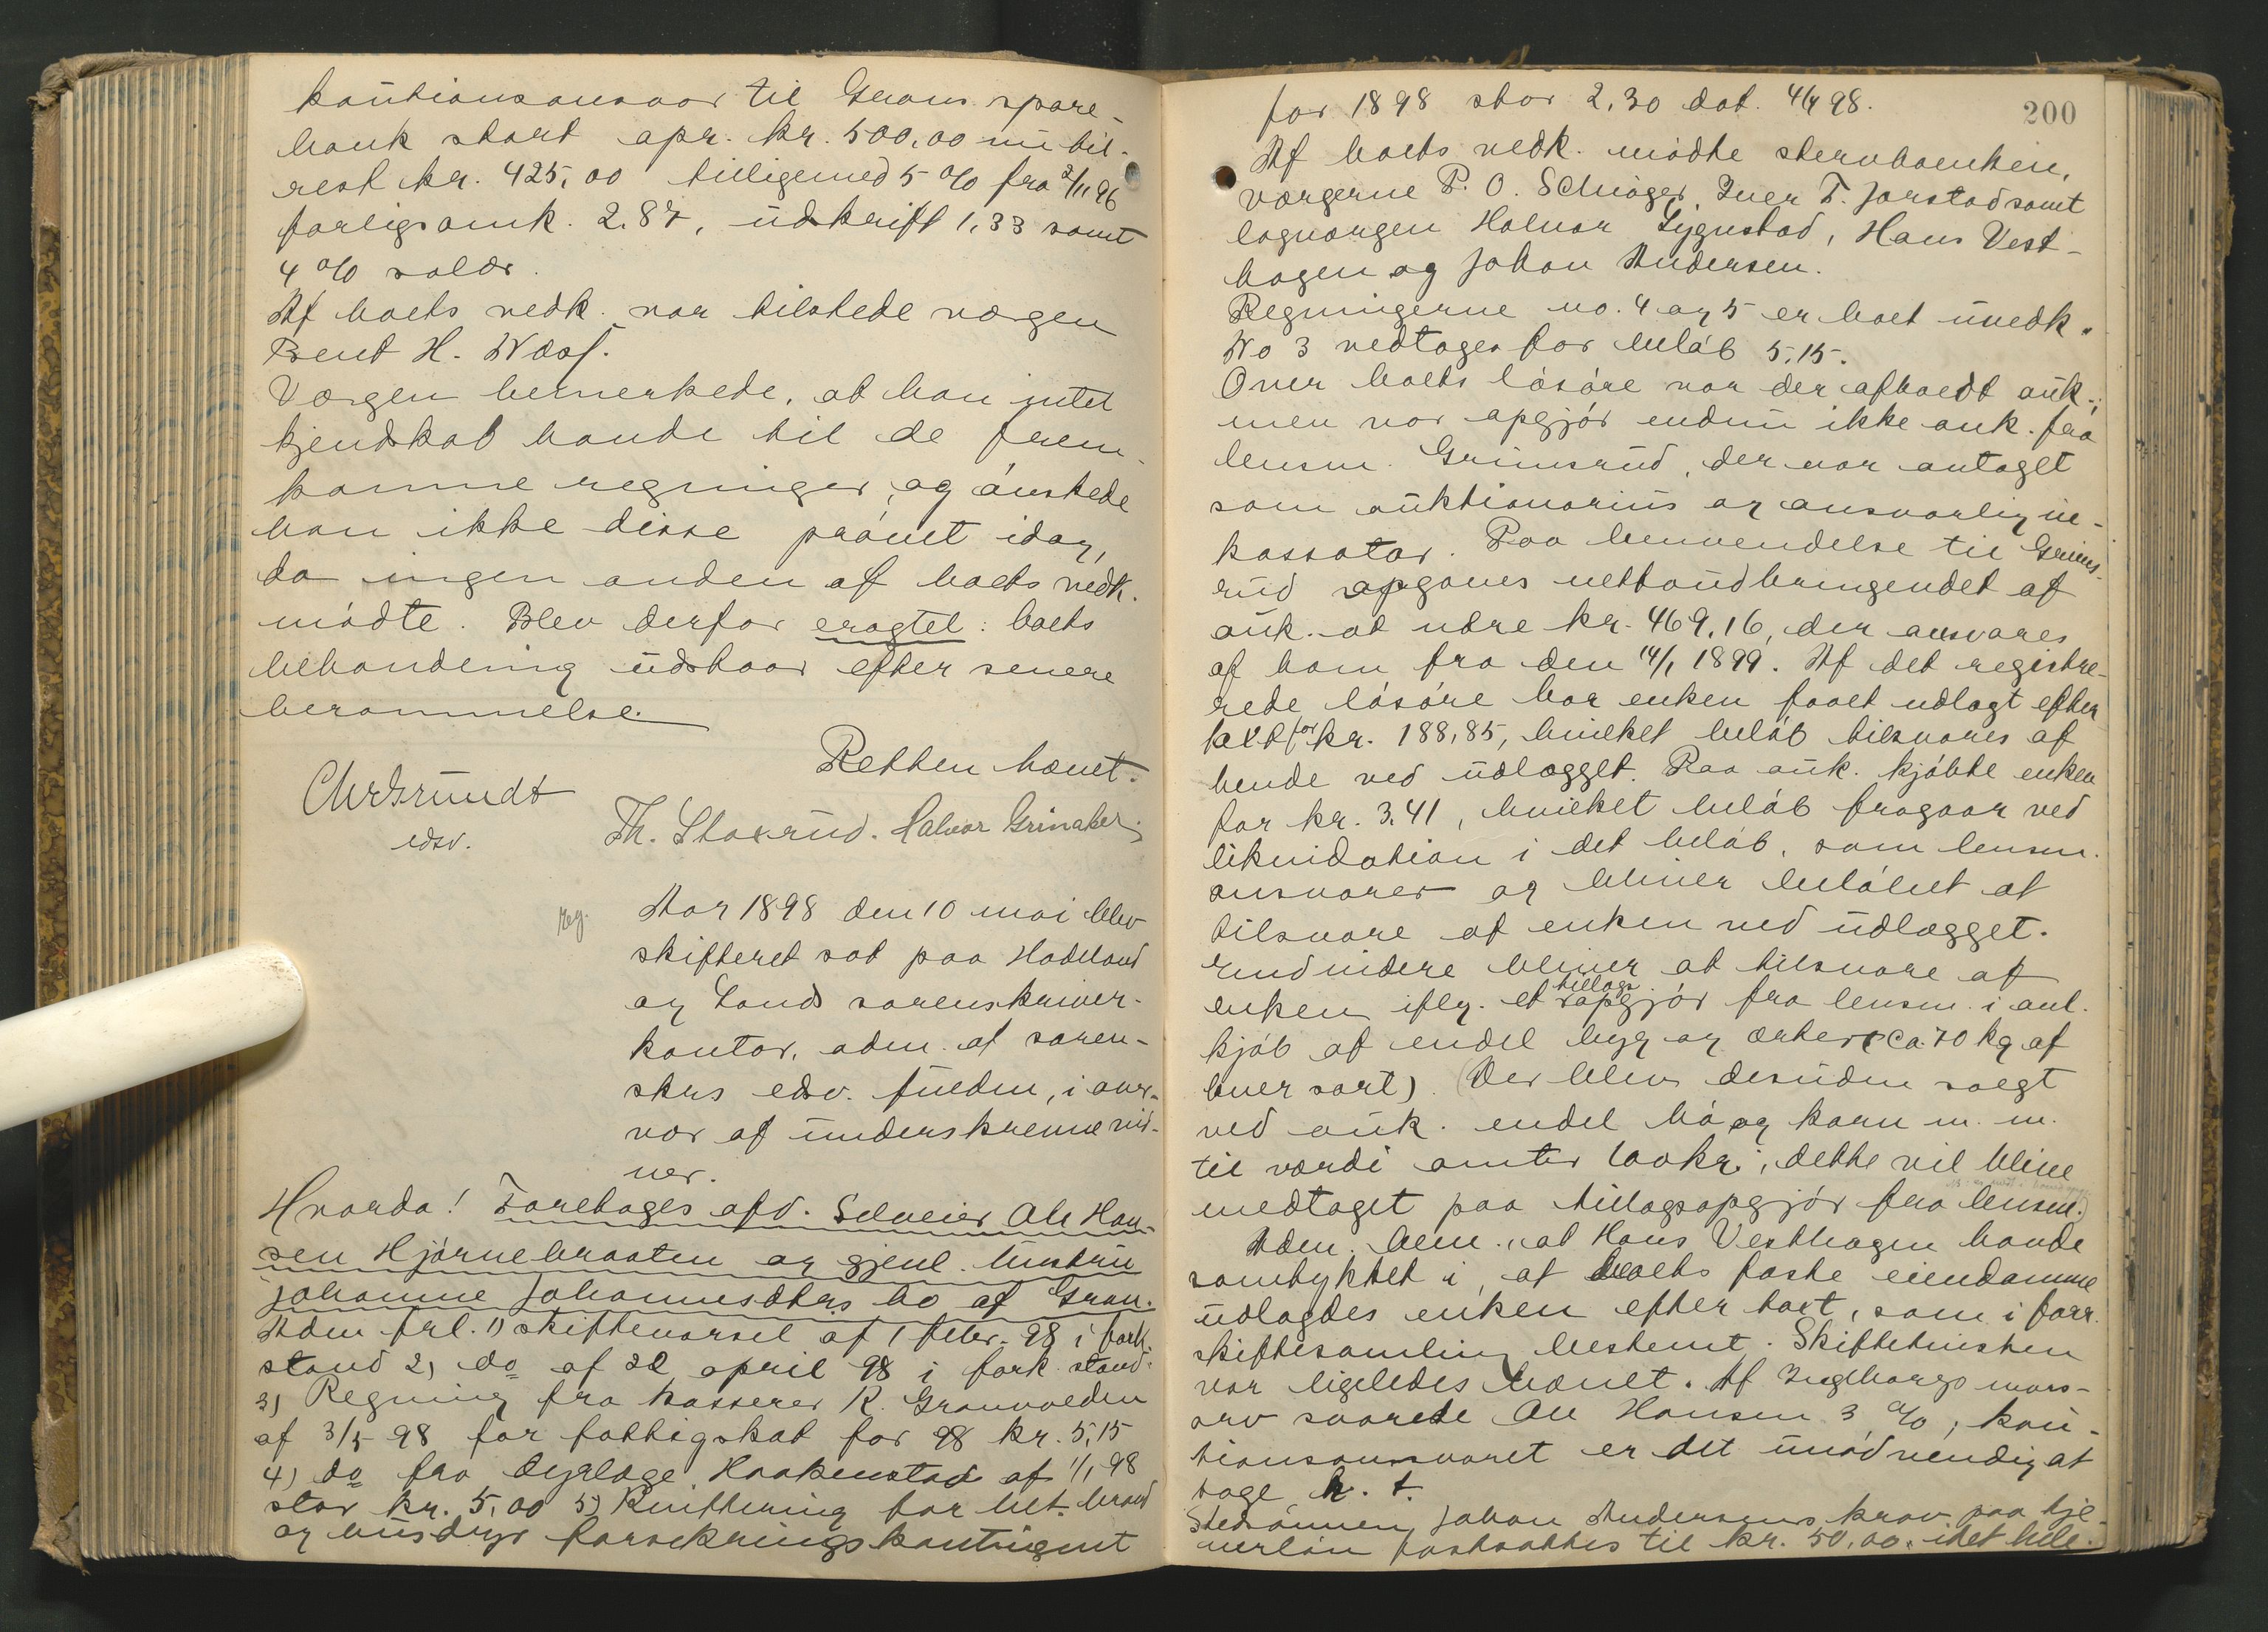 kautionsansvar til Grans spare-
bank stort opr. kr. 500,00 nu til-
rest kr. 425,00 tilligemed 5 % fra 2/11 96
forligsomk. 2.87, udskrift 1,33 samt
4 % salær.
Af boets vedk. var tilstede værgen
Bent H.
Værgen bemerkede, at han intet
kjendskab havde til de frem-
komne regninger, og ønskede
han ikke disse prøvet idag,
da ingen anden af boets vedk.
mødte. Blev derfor eragtet: boets
behandling udstaar efter senere
berammelse.
Retten hævet.
Chr Grundt
edsv.
Th. Staxrud. Halvor Grinaker.
reg.
Aar 1898 den 10 mai blev
skifteret sat paa Hadeland
og Lands sorenskriver-
kontor, adm. af soren-
skrs edsv. fuldm, i over-
vær af underskrevne vid-
ner.
Hvorda! Foretages afd. Selveier Ole Han-
sen Hjørnebraaten og gjenl. hustru
Johanne Johannesdtrs bo af Gran.
Adm frl. 1) skiftevarsel af 1 febr. 98 i fork.
stand 2) do af 22 april 98 i fork. stand.
3) Regning fra kasserer K. Granvolden
af 3/5 98 for fattigskat for 98 kr. 5,15
4) do fra dyrlæge Haakenstad af 1/1 98
stor kr. 5,00 5) Kvittering for bet. brand
og husdyr forsekringskontingent
200
for 1898 stor 2,30 dat. 4/4 98.
Af boets vedk. mødte stervboenken,
værgerne P. O. Schiøger, Iver T. Jorstad samt
lagværgen Halvor Lygnstad, Hans Vest-
hagen og Johan Andersen.
Regningerne no. 4 og 5 er boet uvedk.
No 3 vedtages for beløb 5,15.
Over boets løsøre var der afholdt auk.;
men var opgjør endnu ikke ank. fra
lensm. Grimsrud, der var antaget
som auktionarius og ansvarlig in-
kassator. Paa henvendelse til Grims-
rud opgaves nettoudbringendet af
auk. at være kr. 469,16, der ansvares
af ham fra den 14/1 1899. Af det registre-
rede løsøre har enken faaet udlagt efter
taxt for kr. 188,85, hvilket beløb tilsvares af
hende ved udlægget. Paa auk. kjøbte enken
for kr. 3,41, hvilket beløb fragaar ved
likvidation i det beløb, som lensm.
ansvarer og bliver beløbet at
tilsvare af enken ved udlægget.
Endvidere bliver at tilsvare af
enken iflg. et tillægs opgjør fra lensm. i anl.
kjøb af endel byg og erter (ca. 70 kg af
hver sort). (Der blev desuden solgt
ved auk. endel hø og korn m. m.
til værdi omtr 100 kr., dette vil blive
medtaget paa tillægsopgjør fra lensm.)
Adm. bem., at Hans Vesthagen havde
samtykket i, at boets faste eiendomme
udlagdes enken efter taxt, som i forr.
skiftesamling bestemt. Skiftetvisten
var ligeledes hævet. Af Ingeborgs mors-
arv svarede Ole Hansen 3 %, kau-
tionsansvaret er det unødvendig at
tage h. t.
Stedsønnen Johan Andersens krav paa tje-
nerløn fastsattes til kr. 50,00. i det hele.